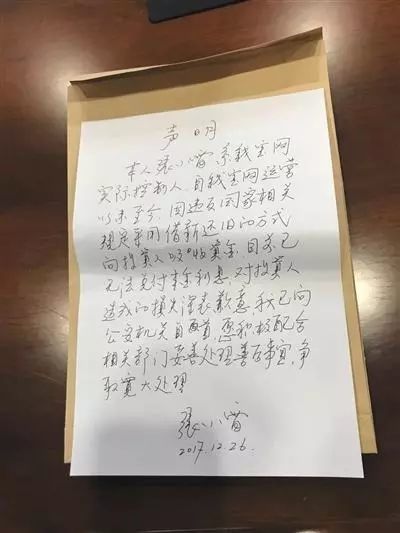 声明
本人张小雷系钱宝网
实际控制人.自钱宝网运营
以来至今,因违反国家相关
规定采用借新还旧的方式
向投资人吸收资金,目前已
无法兑付本金利息,对投资人
造成的损失深表歉意.我已向
公安机关自首,愿积极配合
相关部门妥善处理善后事宜,争
取宽大处理
张小雷
2017.12.26.